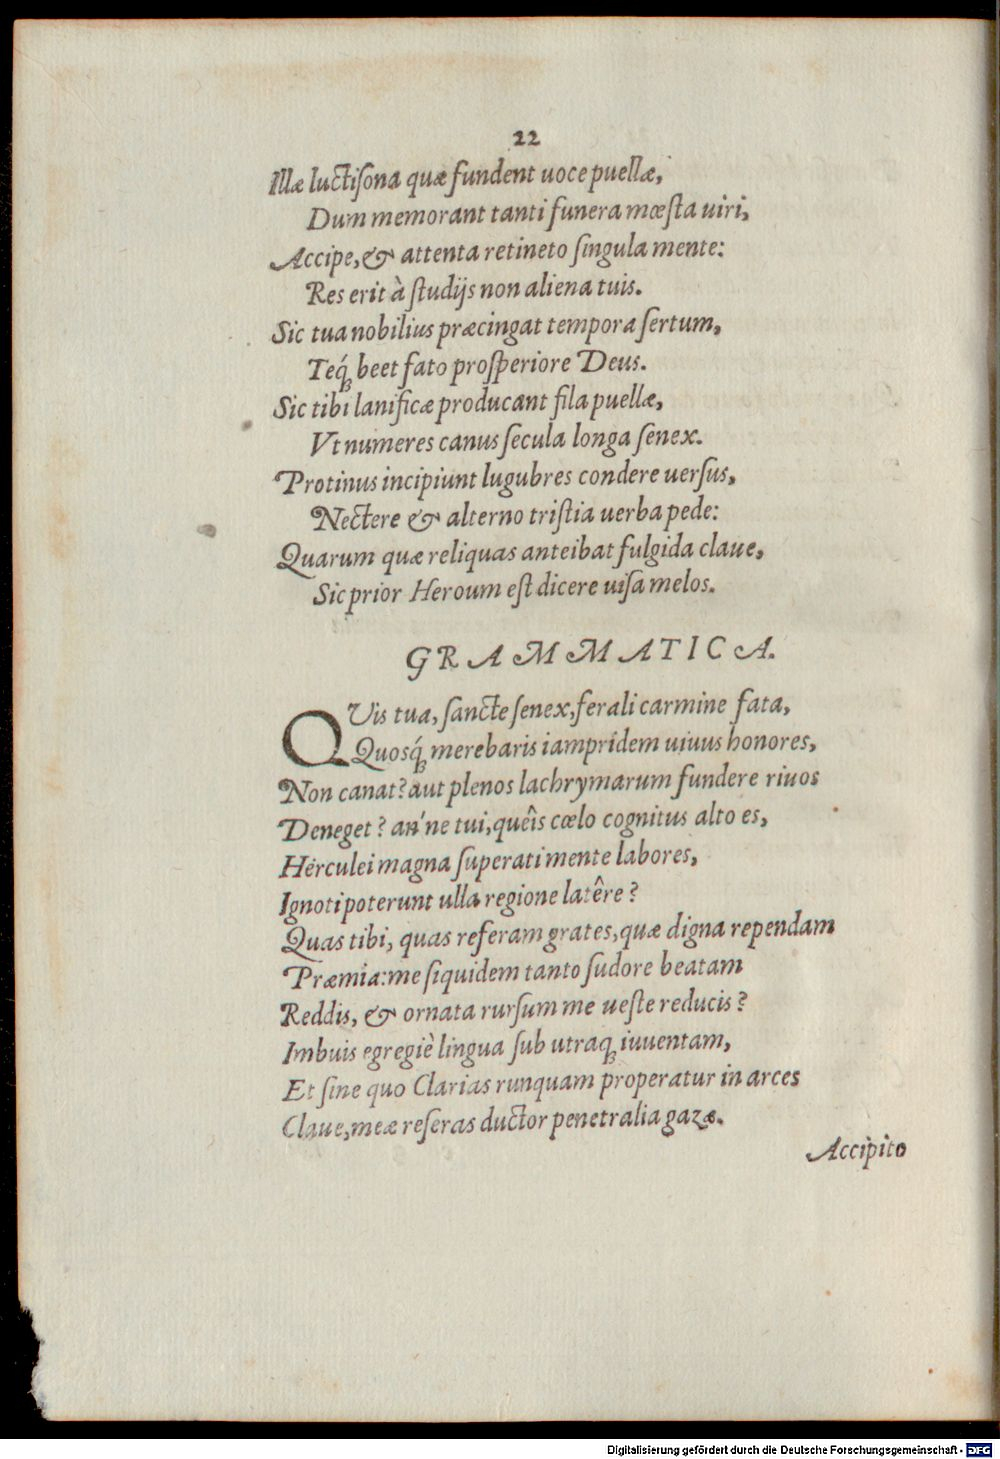 22
Illæ luctiſona quæ fundent uoce puellæ,
Dum memorant tanti funera mœſta uiri,
Accipe, & attenta retineto ſingula mente:
Res erit à ſtudijs non aliena tuis.
Sic tua nobilius præcingat tempora ſertum,
Teq́; beet fato proſperiore Deus.
Sic tibi lanificæ producant fila puellæ,
Vt numeres canus ſecula longa ſenex.
Protinus incipiunt lugubres condere uerſus,
Nectere & alterno triſtia uerba pede:
Quarum quæ reliquas anteibat fulgida claue,
Sic prior Heroum eſt dicere uiſa melos.
GRAMMATICA.
QVis tua, ſancte ſenex, ferali carmine fata,
Quosq́; merebaris iampridem uiuus honores,
Non canat? aut plenos lachrymarum fundere riuos
Deneget? an'ne tui, queîs cœlo cognitus alto es,
Herculei magna ſuperati mente labores,
Ignoti poterunt ulla regione latêre?
Quas tibi, quas referam grates, quæ digna rependam
Præmia: me ſiquidem tanto ſudore beatam
Reddis, & ornata rurſum me ueſte reducis?
Imbuis egregiè lingua ſub utraq; iuuentam,
Et ſine quo Clarias nunquam properatur in arces
Claue, meæ reſeras ductor penetralia gazæ.
Accipito
Digitalisierung gefördert durch die Deutsche Forschungsgemeinschaft - DFG